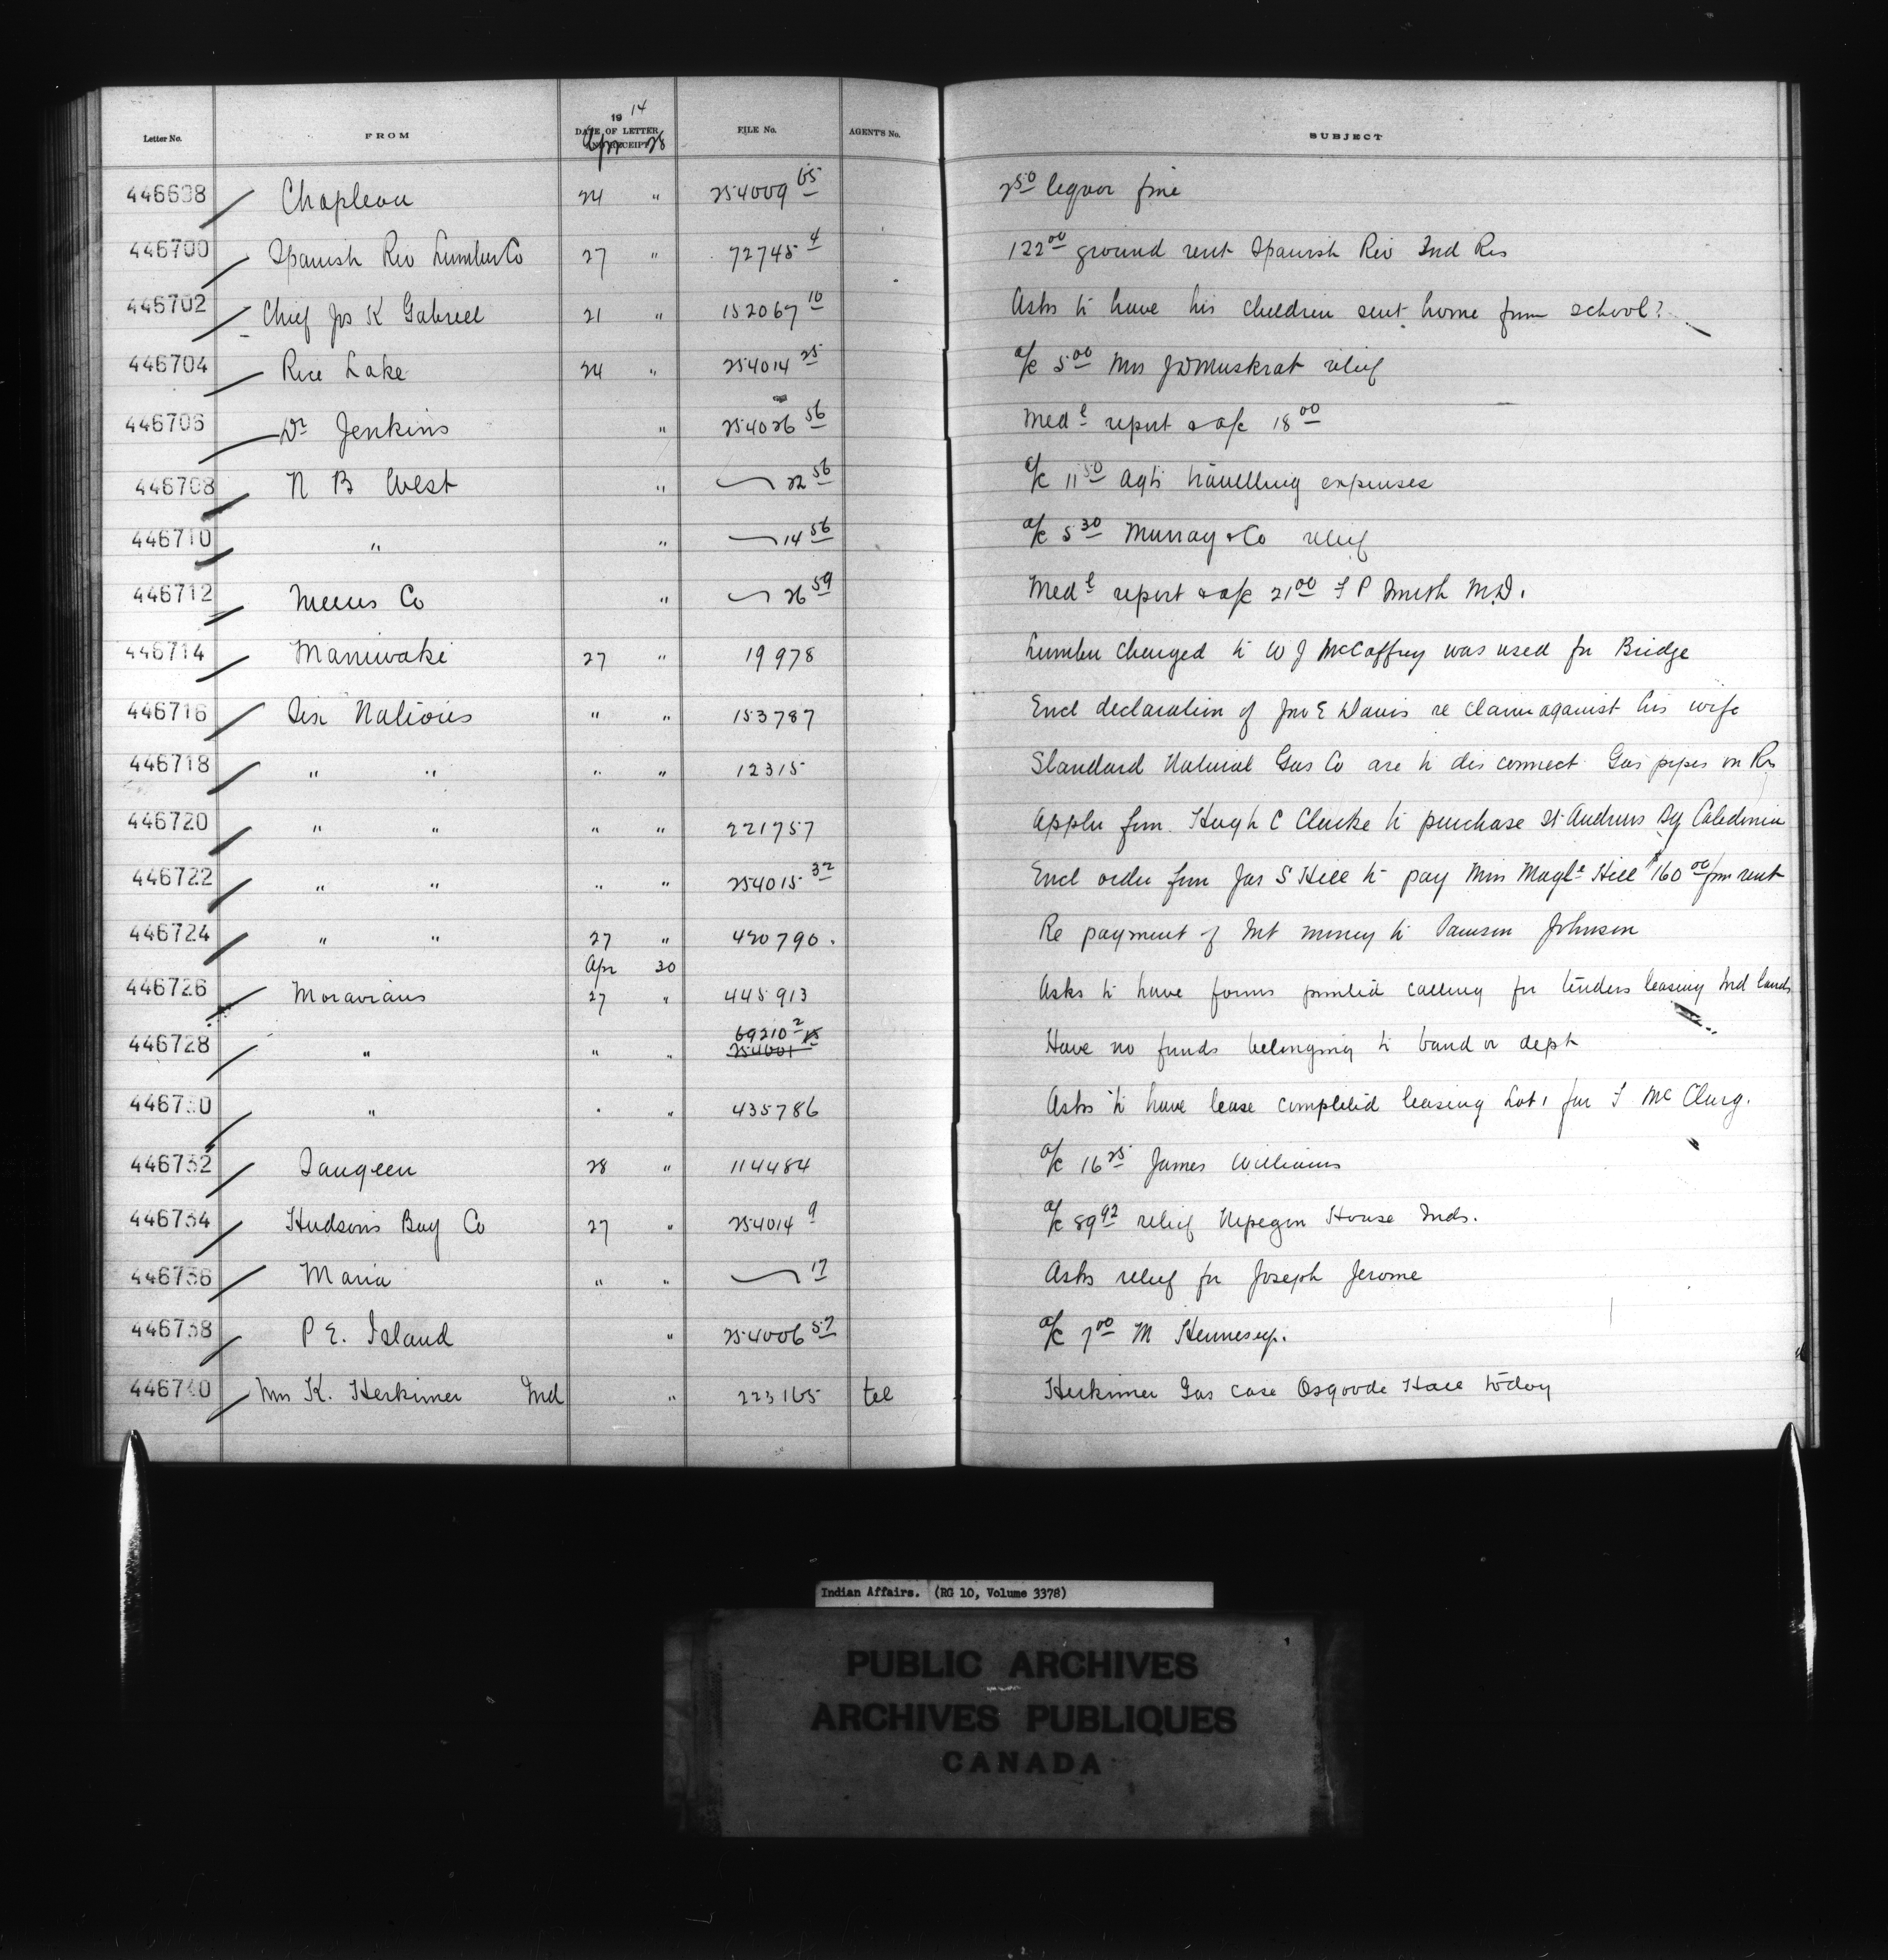 Letter No. FROM 19 14 DATE OF LETTER AND RECEIPT FILE No. AGENT'S No. SUBJECT
Apr 28
446698 Chapleau 24 " 254009 65 2 50 liquor fine
446700 Spanish Riv Lumber Co 27 " 72745 4 122 00 ground rent Spanish Riv Ind Res
446702 Chief Jos K Gabriel 21 " 152067 10 Asks to have his children sent home from school?
446704 Rice Lake 24 " 254014 25 a/c 5 00 Mrs J D Muskrat relief
446706 Dr Jenkins " 254026 56 Medl report & a/c 18 00
446708 N B West " 22 56 a/c 11 50 Agts travelling expenses
446710 " " 14 56 a/c 5 30 Murray & Co relief
446712 Co " 26 59 Medl report & a/c 21 00 F P Smith M.D.
446714 Maniwaki 27 " 19978 Lumber charged to W J McCaffrey was used for Bridge
446716 Six Nations " " 153787 Encl declaration of Jno E Davis re claim against his wife
446718 " " " " 12315 Standard Natural Gas Co are to disconnect Gas pipes on Res
446720 " " " " 221757 Appln from Hugh C Clarke to purchase St Andrews Sq Caledonia
446722 " " " " 254015 32 Encl order from Jas S Hill to pay Mrs Magle Hill $160 00 from rent
446724 " " 27 " 420790. Re payment of Int money to Johnson
Apr 30
446726 Moravians 27 " 445913 Asks to have forms printed calling for tenders leasing Ind lands
446728 " " " 69210 2 254001 15 Have no funds belonging to band or dept
446730 " " " 435786 Asks to have lease completed leasing Lot 1 for F McClurg.
446732 Saugeen 28 " 114484 a/c 16 25 James Williams
446734 Hudsons Bay Co 27 " 254014 9 a/c 89 92 relief Nipegon House Inds.
446736 Maria " " 17 Asks relief for Joseph Jerome
446738 P E. Island " 254006 57 a/c 7 00 M Hennessy.
446740 Mrs K. Herkimer Ind " 223165 tel Herkimer Gas case Osgoode Hall today
Indian Affairs. (RG 10, Volume 3378)
PUBLIC ARCHIVES
ARCHIVES PUBLIQUES
CANADA